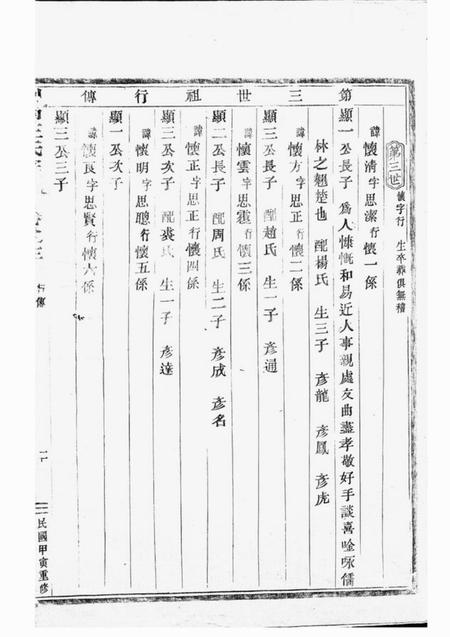 第三世祖行傳
第三世 懷字行 生卒葬俱無稽
諱懷清字思潔行懷一係
顯一公長子 為人慷慨和易近人事親處友曲盡孝敬好手談喜唫咏儒
林之翹楚也 配楊氏 生三子 彥龍 彥鳳 彥虎
諱懷方字思正行懷二係
顯三公長子 配趙氏 生一子 彥通
諱懷雲字思霓行懷三係
顯二公長子 配周氏 生二子 彥成 彥名
諱懷正字思正行懷四係
顯三公次子 配裘氏 生一子 彥達
諱懷明字思聰行懷五係
顯一公次子
諱懷良字思賢行懷六係
顯三公三子
行傳
民國甲寅重修